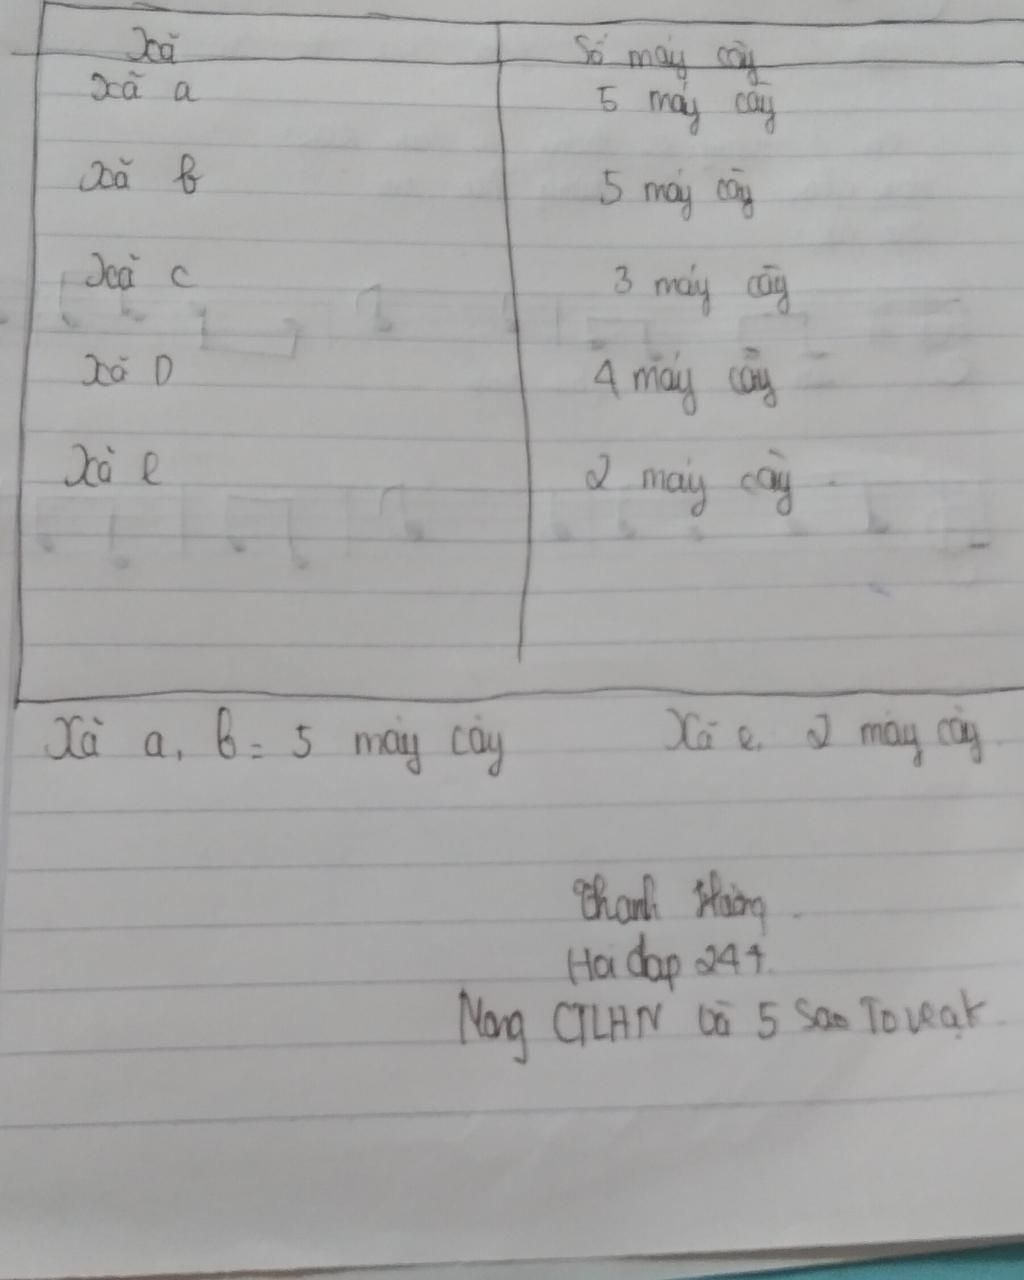 Xã Số máy cày
Xã a 5 máy cày
Xã b 5 máy cày
Xã c 3 máy cày
Xã D 4 máy cày
Xã e 2 máy cày
Xã a, b = 5 máy cày Xã e, 2 máy cày
Thanh Hường
Hoi đap 247
Mong CTLHN và 5 sao